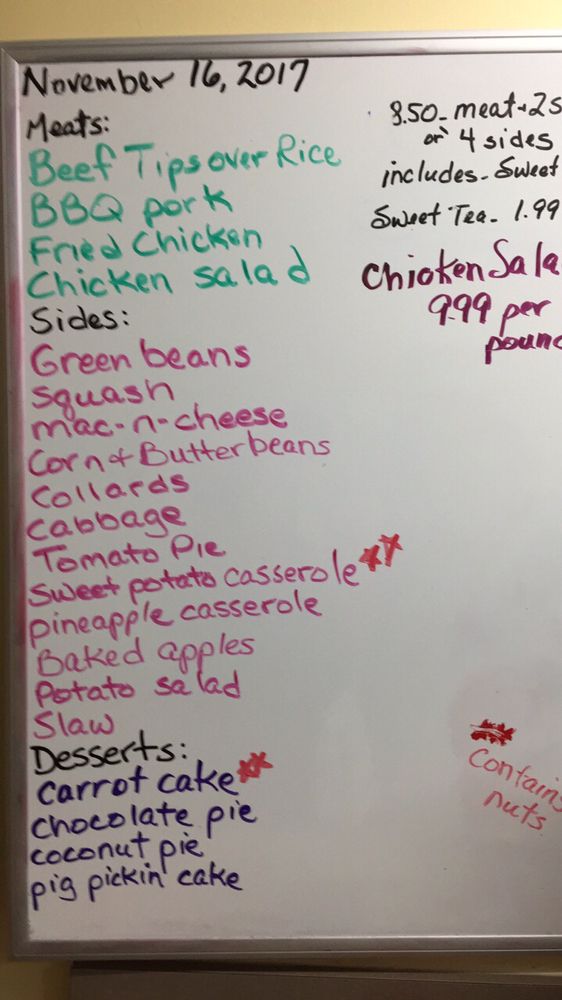 November 16, 2017
Meats:
Beef Tips over Rice
BBQ pork
Fried Chicken
Chicken salad
Sides:
Green beans
squash
mac-n-cheese
Corn & Butterbeans
Collards
Cabbage
Tomato Pie
Sweet potato casserole**
pineapple casserole
Baked apples
Potato salad
Slaw
Desserts:
Carrot cake**
chocolate pie
coconut pie
pig pickin' cake
8.50- meat + 2s
or 4 sides
includes- Sweet
Sweet Tea- 1.99
Chicken Sala
9.99 per
poun
Contains
nuts